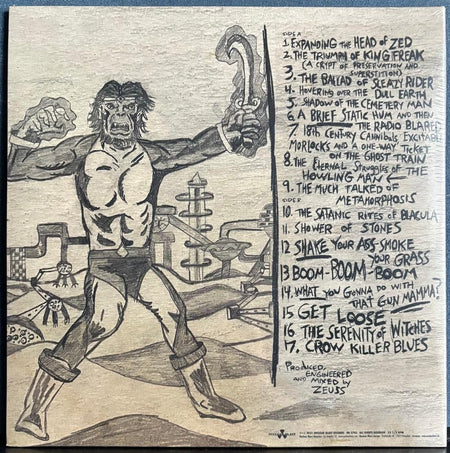 SIDE A
1. EXPANDING THE HEAD OF ZED
2. THE TRIUMPH OF KING FREAK
(A CRIPT OF PRESERVATION AND
SUPERSTITION)
3. THE BALLAD OF SLEAZY RIDER
4. HOVERING OVER THE DULL EARTH
5. SHADOW OF THE CEMETERY MAN
6. A BRIEF STATIC HUM AND THEN
THE RADIO BLARED
7. 18th CENTURY CANNIBALS, EXCITABLE
MORLOCKS AND A ONE-WAY TICKET
ON THE GHOST TRAIN
8. THE ETERNAL STRUGGLES OF THE
HOWLING MAN
9. THE MUCH TALKED OF
METAMORPHOSIS
SIDE B
10. THE SATANIC RITES OF BLACULA
11. SHOWER OF STONES
12 SHAKE YOUR ASS-SMOKE
YOUR GRASS
13 BOOM-BOOM-BOOM
14. WHAT YOU GONNA DO WITH
THAT GUN MAMMA?
15 GET LOOSE
16 THE SERENITY OF WITCHES
17. CROW KILLER BLUES
PRODUCED,
ENGINEERED
AND MIXED BY
ZEUSS